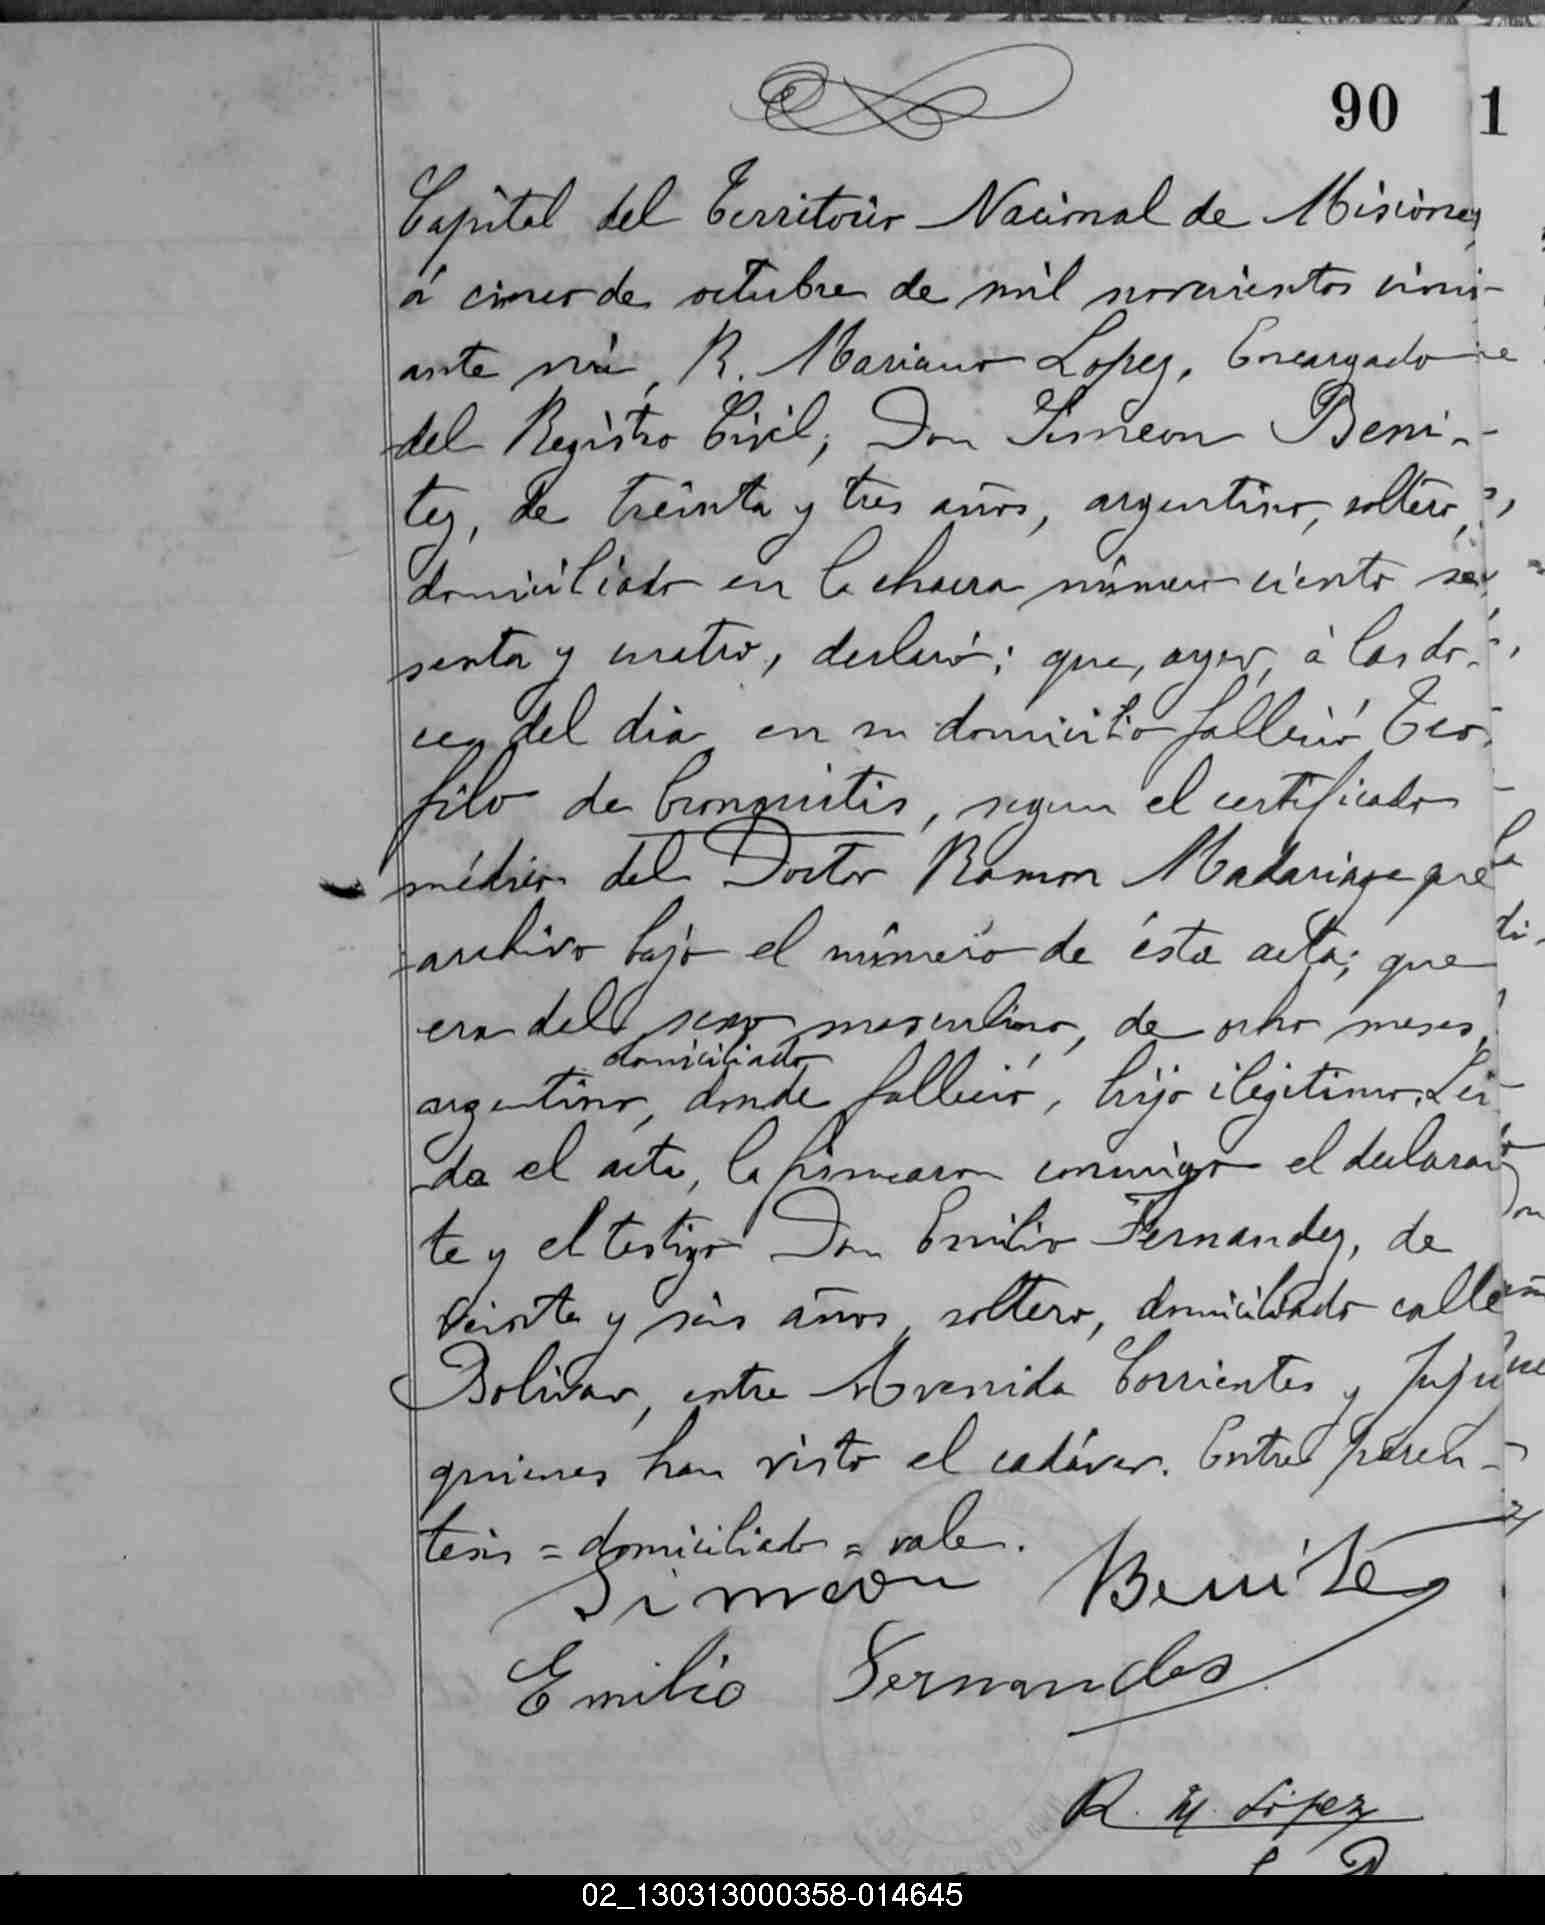 90 1
Capital del Territorio Nacional de Misiones
á cinco de octubre de mil novecientos cinco
ante mí, R. Mariano Lopez, Encargado
del Registro Civil, Don Simeon Beni-
tez, de treinta y tres años, argentino, soltero,
domiciliado en la chacra número ciento se
senta y cuatro, declaró: que, ayer, á las do-
ce del dia en su domicilio falleció Teo
filo de bronquitis, segun el certificado
médico del Doctor Ramon Madariaga que
archivo bajo el número de ésta acta; que
era del sexo masculino, de ocho meses,
domiciliado
argentino, donde falleció, hijo ilegitimo. Lei-
da el acta, la firmaron conmigo el declaran
te y el testigo Don Emilio Fernandez, de
veinte y seis años, soltero, domiciliado calle
Bolivar, entre Avenida Corrientes y Jujuy
quienes han visto el cadáver. Entre paren-
tesis = domiciliado = vale.
Simeon Benitez
Emilio Fernandes
R. M. López
02_130313000358-014645